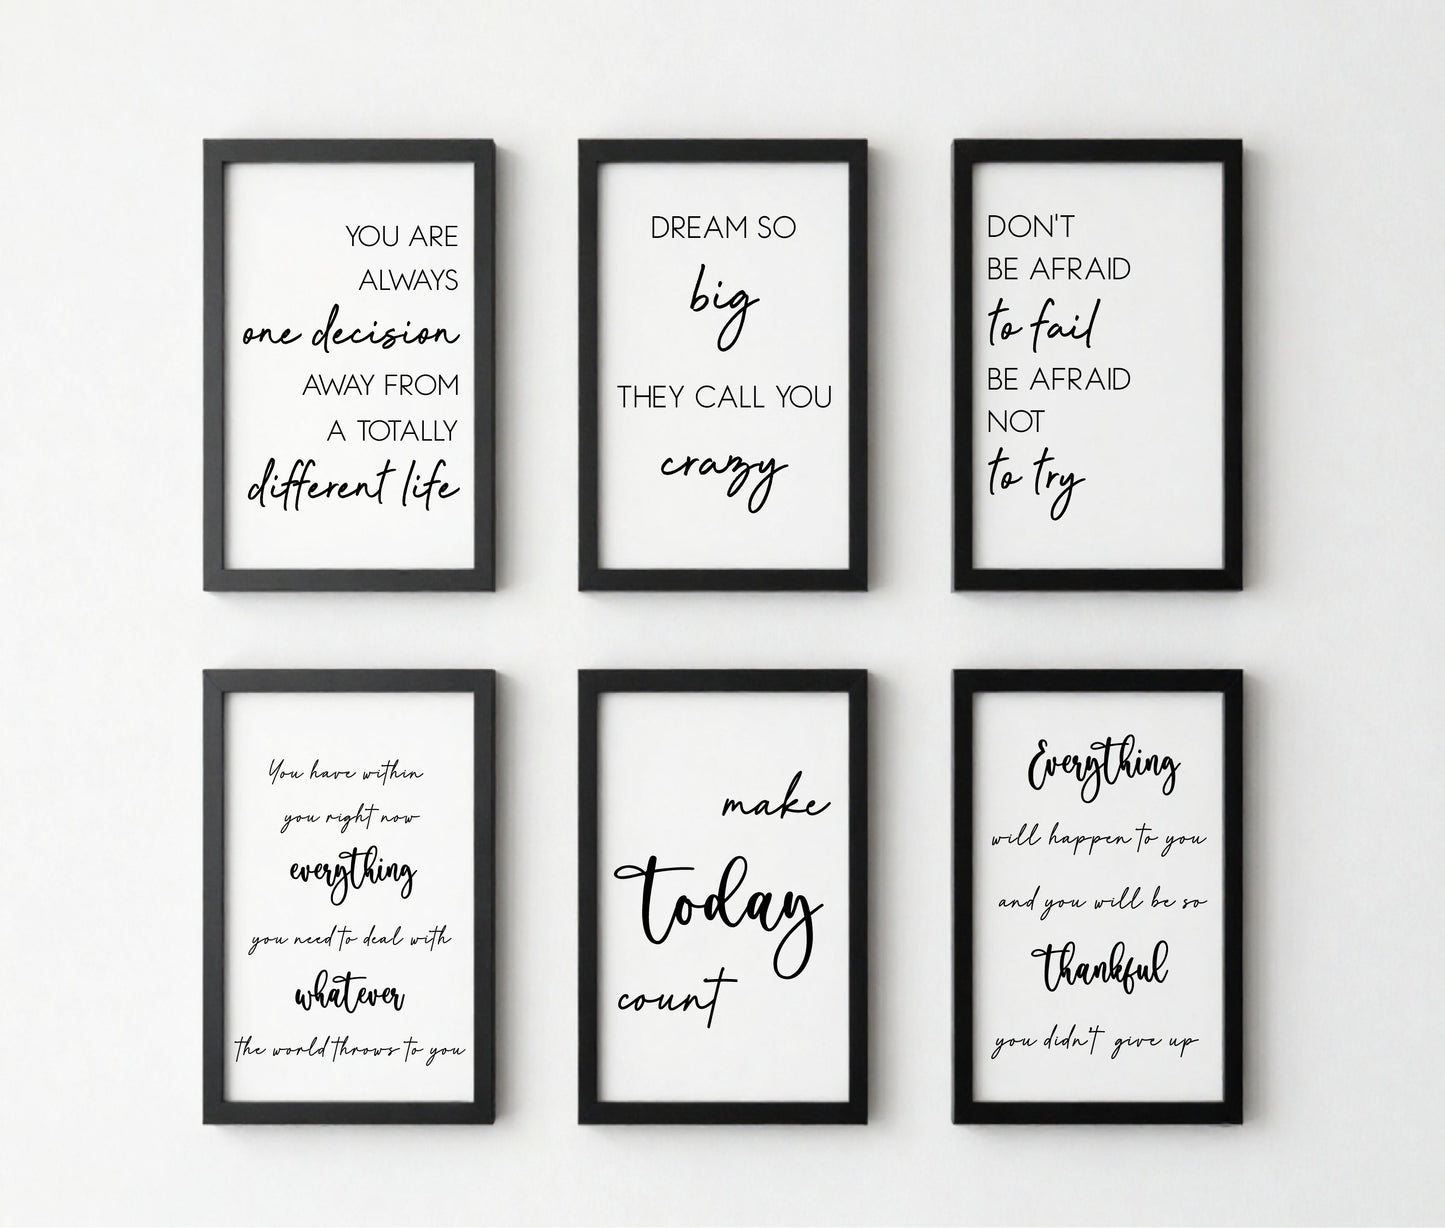 YOU ARE
ALWAYS
one decision
AWAY FROM
A TOTALLY
different life
DREAM SO
big
THEY CALL YOU
crazy
DON'T
BE AFRAID
to fail
BE AFRAID
NOT
to try
You have within
you right now
everything
you need to deal with
whatever
the world throws to you
make
today
count
Everything
will happen to you
and you will be so
thankful
you didn't give up